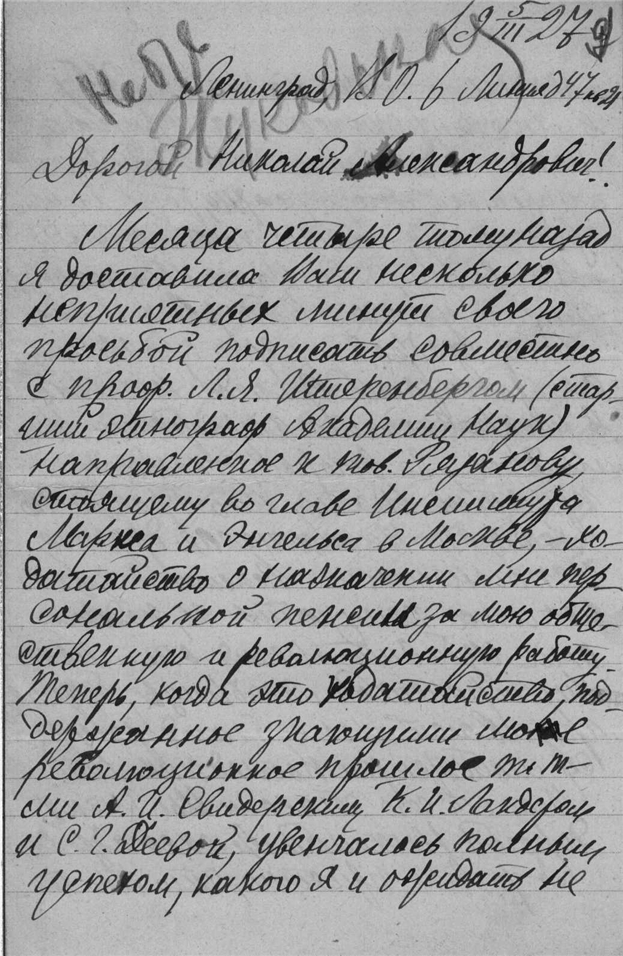 19 5/III 27
Ленинград, В. О. 6 Линия д 47 кв 21
Дорогой Николай Александрович!
Месяца четыре тому назад
я доставила Вам несколько
неприятных минут своею
просьбой подписать совместно
с проф. Л. Я. Штернбергом (стар-
ший этнограф Академии Наук)
направленное к тов. Рязанову,
стоящему во главе Института
Маркса и Энгельса в Москве, – хо-
датайство о назначении мне пер
сональной пенсии за мою обще-
ственную и революционную работу.
Теперь, когда это ходатайство, под-
держанное знающими мое
революционное прошлое т.т-
ми А. И. Свидерским, К. И. Ландером
и С. Г. Деевой, увенчалось полным
успехом, какого я и ожидать не